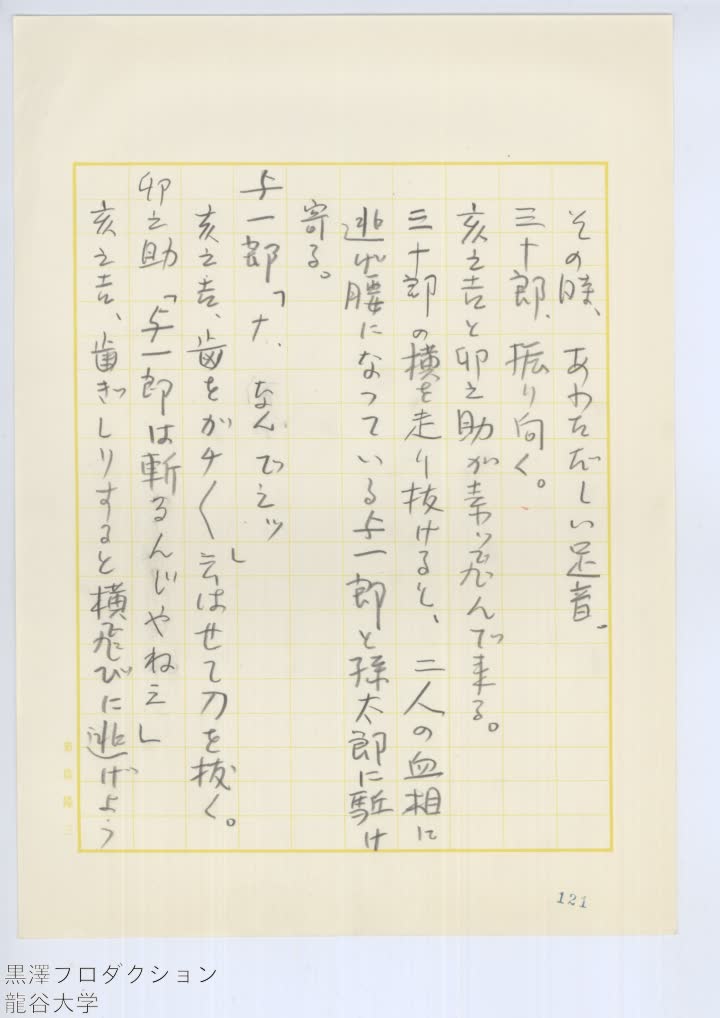 その時、あわただしい足音。
三十郎、振り向く。
亥之吉と卯之助が素ッ飛んで来る。
三十郎の横を走り抜けると、二人の血相に
逃げ腰になっている与一郎と孫太郎に駈け
寄る。
与一郎「ナ、なんでえッ」
亥之吉、歯をガチ〱云はせて刀を抜く。
卯之助「与一郎は斬るんじやねえ」
亥之吉、歯ぎしりすると横飛びに逃げよう
121
黒澤プロダクション
龍谷大学